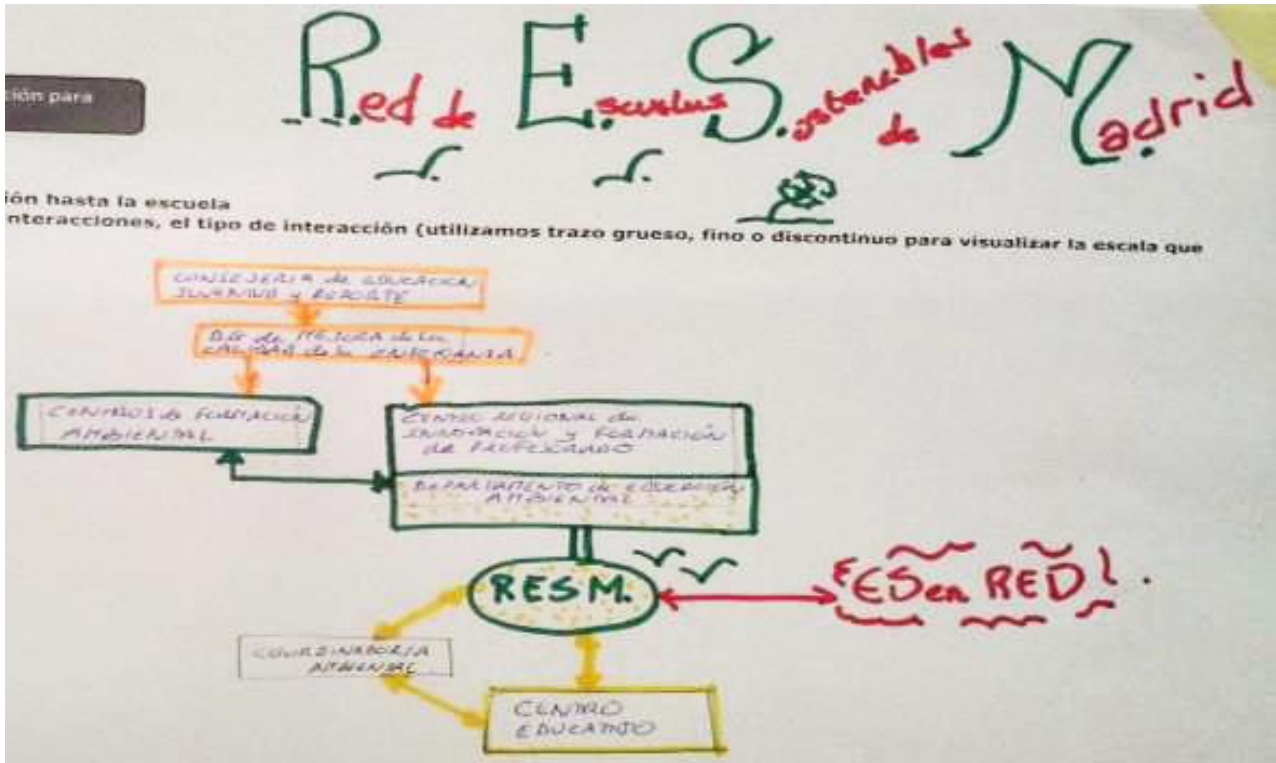 Red de Escuelas Sostenibles de Madrid
ción para
ión hasta la escuela
nteracciones, el tipo de interacción (utilizamos trazo grueso, fino o discontinuo para visualizar la escala que
CONSEJERIA de EDUCACION
JUVENTUD y DEPORTE
D.G de MEJORA de la
CALIDAD de la ENSEÑANZA
CENTROS de FORMACIÓN
AMBIENTAL
CENTRO REGIONAL de
INNOVACIÓN y FORMACIÓN
de PROFESORADO
DEPARTAMENTO de EDUCACIÓN
AMBIENTAL
RESM.
ESen RED
COORDINADOR/A
AMBIENTAL
CENTRO
EDUCATIVO